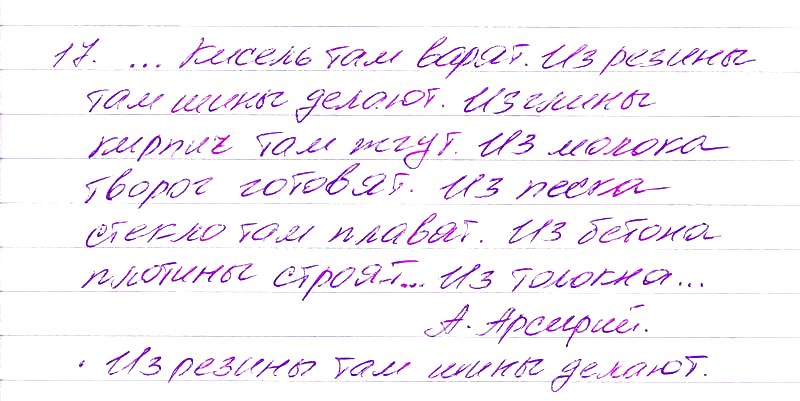 17. ... Кисель там варят. Из резины
там шины делают. Из глины
кирпич там жгут. Из молока
творог готовят. Из песка
стекло там плавят. Из бетона
плотины строят... Из толокна...
А. Арсирий.
· Из резины там шины делают.